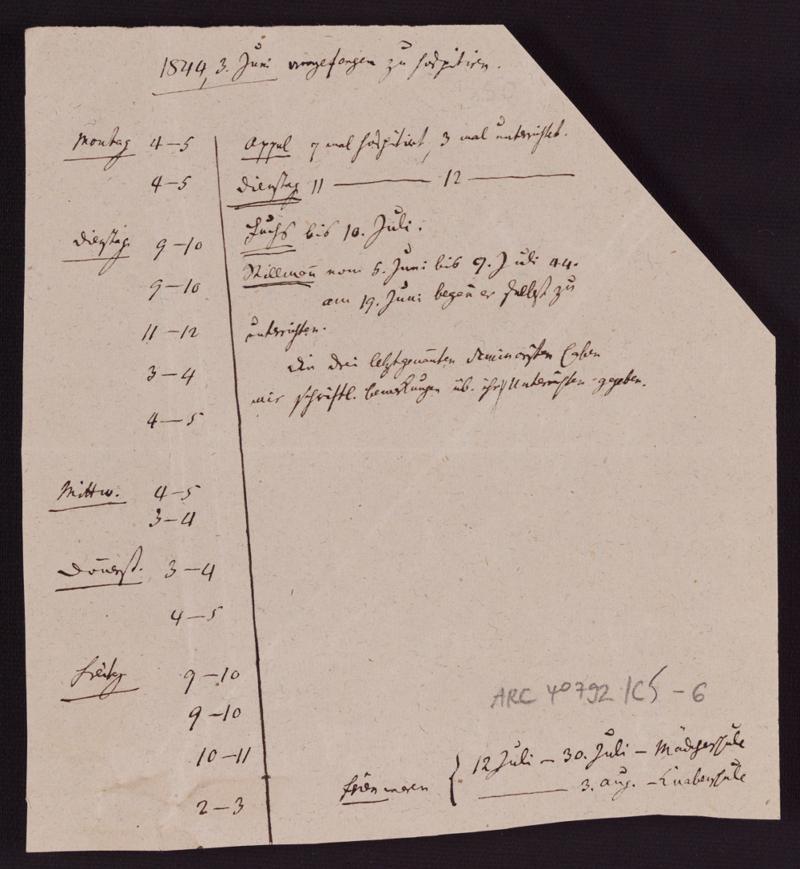 1844, 3. Juni angefangen zu hospitiren.
Montag 4–5
4–5
Dienstag 9–10
9–10
11–12
3–4
4–5
Mittw. 4–5
3–4
Donnerst. 3–4
4–5
Freitag 9–10
9–10
10–11
2–3
Appel 7 mal hospitirt, 3 mal unterrichtet.
Dienstag 11 — 12 —
Fuchs bis 10. Juli.
vom 5. Juni bis 9. Juli 44.
am 19. Juni began̄ er selbst zu
unterrichten.
Die drei letztgenannten Seminaristen haben
mir schriftl. Bemerkungen üb. ihr Unterrichten gegeben.
ARC 40792 /C5 – 6
Ferien waren { 12 Juli – 30. Juli – Mädchenschule
— 3. Aug. – Knabenschule